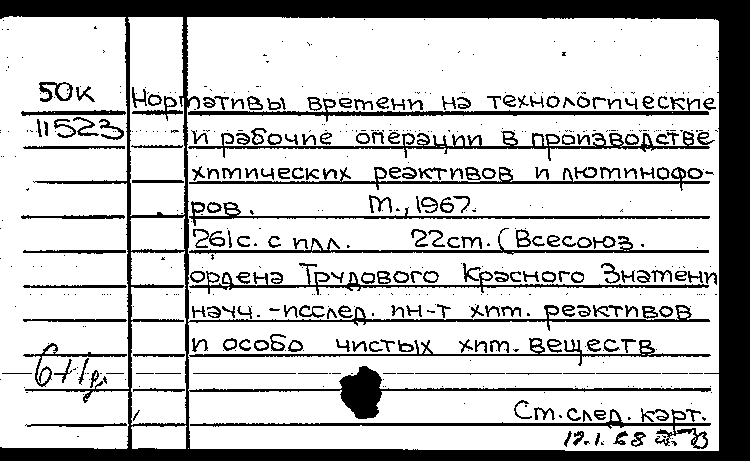 50к Нормативы времени на технологические
11523 и рабочие операции в производстве
химических реактивов и люминофо-
ров. М., 1967.
261с. с илл. 22см. (Всесоюз.
ордена Трудового Красного Знамени
науч.-исслед. ин-т хим. реактивов
и особо чистых хим. веществ
См. след. карт.